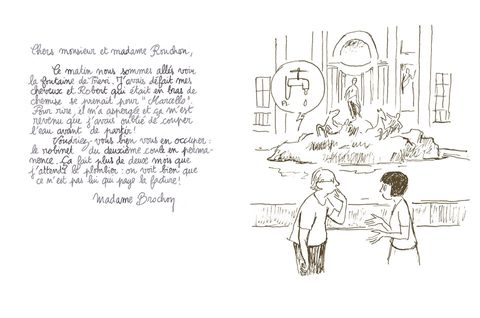 Chers monsieur et madame Rouchon,
Ce matin nous sommes allés voir
la fontaine de Trevi. J'avais défait mes
cheveux et Robert qui était en bras de
chemise se prenait pour "Marcello".
Pour rire, il m'a aspergée et ça m'est
revenu que j'avais oublié de couper
l'eau avant de partir !
Voudriez-vous bien vous en occuper :
le robinet du deuxième coule en perma-
nence. Ça fait plus de deux mois que
j'attends le plombier : on voit bien que
ce n'est pas lui qui paye la facture !
Madame Brochon